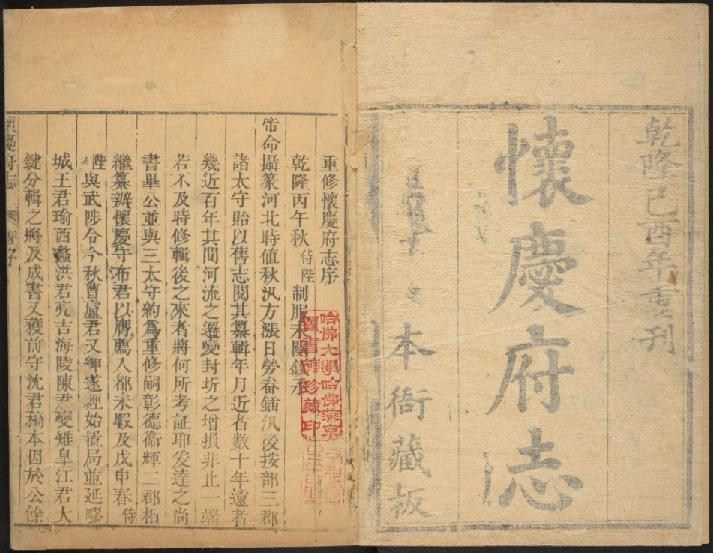 乾隆己酉年重刊
懷慶府志
本衙藏板
重修懷慶府志序
乾隆丙午秋侍陛制服未闋欽承
帝命攝篆河北時值秋汛方漲日勞畚鍤汛後按部三郡
諸太守貽以舊志閱其纂輯年月近者數十年遠者
幾近百年其間河流之遷變封圻之增損非止一端
若不及時修輯後之來者將何所考証耶爰達之尚
書畢公並與三太守約為重修嗣彰德衛輝二郡相
繼纂辦懷慶守布君以膺薦入都未暇及戊申春侍
陛與武陟令今秋曹盧君又紳遂經始設局並延
城王君瑜西蠡洪君亮吉海陵陳君燮雉皋江君大
鍵分輯之將及成書又獲前守沈君稿本因於公餘
懷慶府志
哈佛大學哈佛燕京
圖書館珍藏印